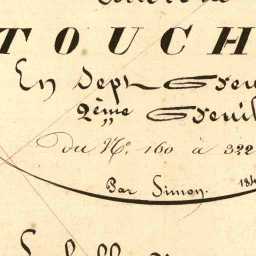 TOUCH
En Sept Feu
2ème Feuil
du N° 160 à 322
Par Simon. 184